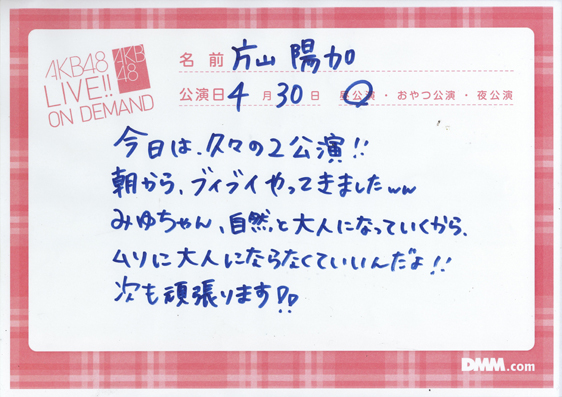 AKB48
LIVE!!
ON DEMAND
AKB
48
名前 片山 陽加
公演日 4月30日 昼公演・おやつ公演・夜公演
今日は、久々の2公演!!
朝から、ブイブイやってきましたww
みゆちゃん、自然と大人になっていくから、
ムリに大人にならなくていいんだよ!!
次も頑張ります!!
DMM.com